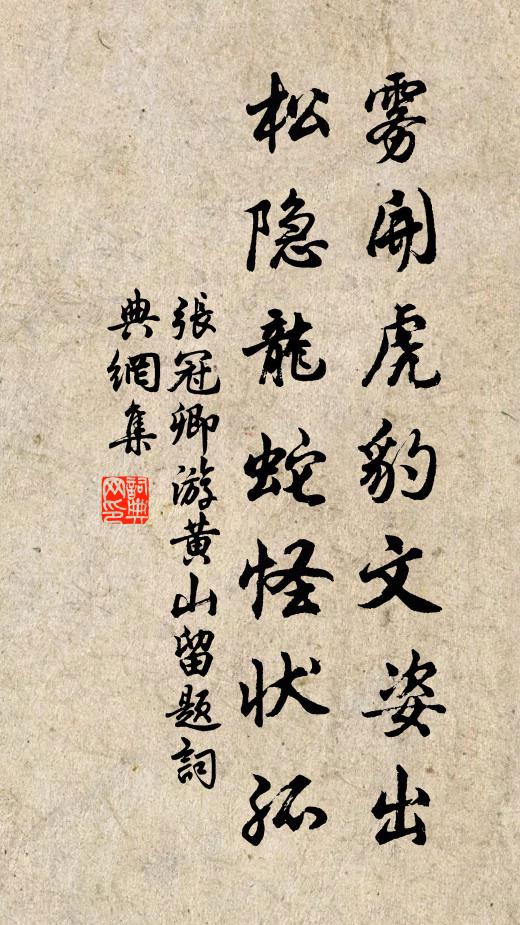 雾开虎豹文姿出
松隐龍蛇怪状孤
張冠卿游黄山留题詞
典網集
詞典网印